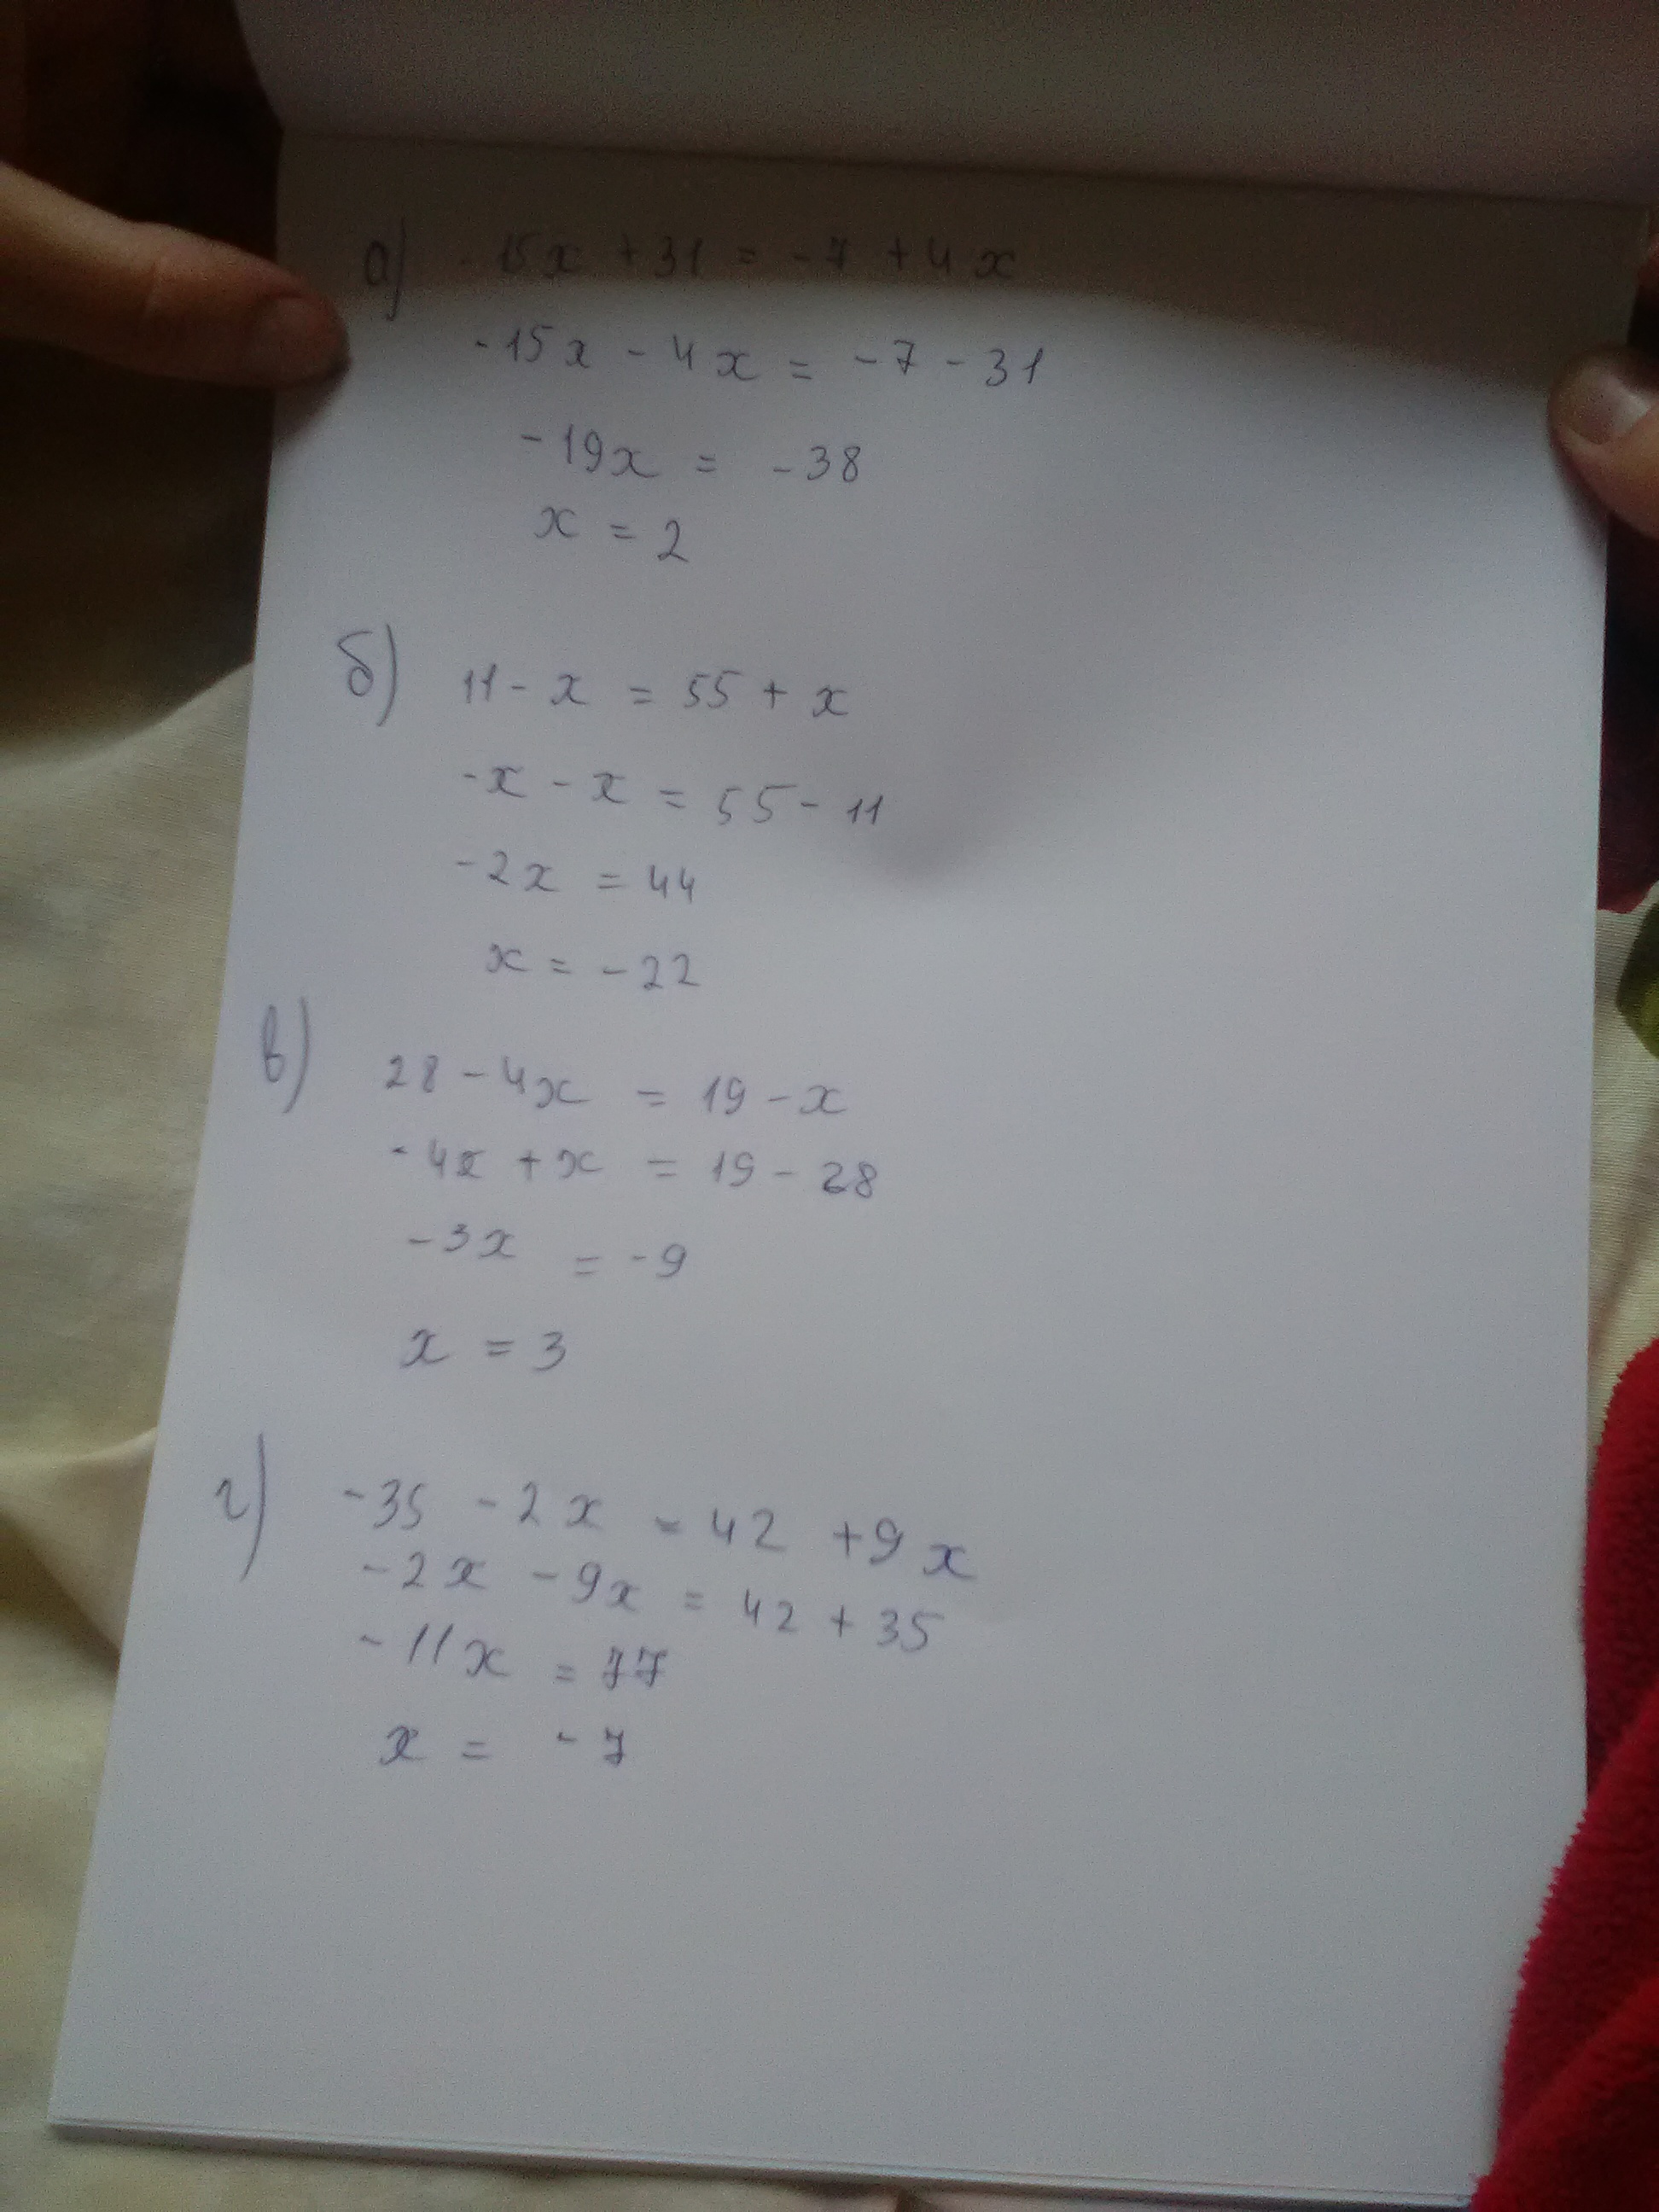 а) -15x + 31 = -7 + 4x
-15x - 4x = -7 - 31
-19x = -38
x = 2
б) 11 - x = 55 + x
-x - x = 55 - 11
-2x = 44
x = -22
в) 28 - 4x = 19 - x
-4x + x = 19 - 28
-3x = -9
x = 3
г) -35 - 2x = 42 + 9x
-2x - 9x = 42 + 35
-11x = 77
x = -7